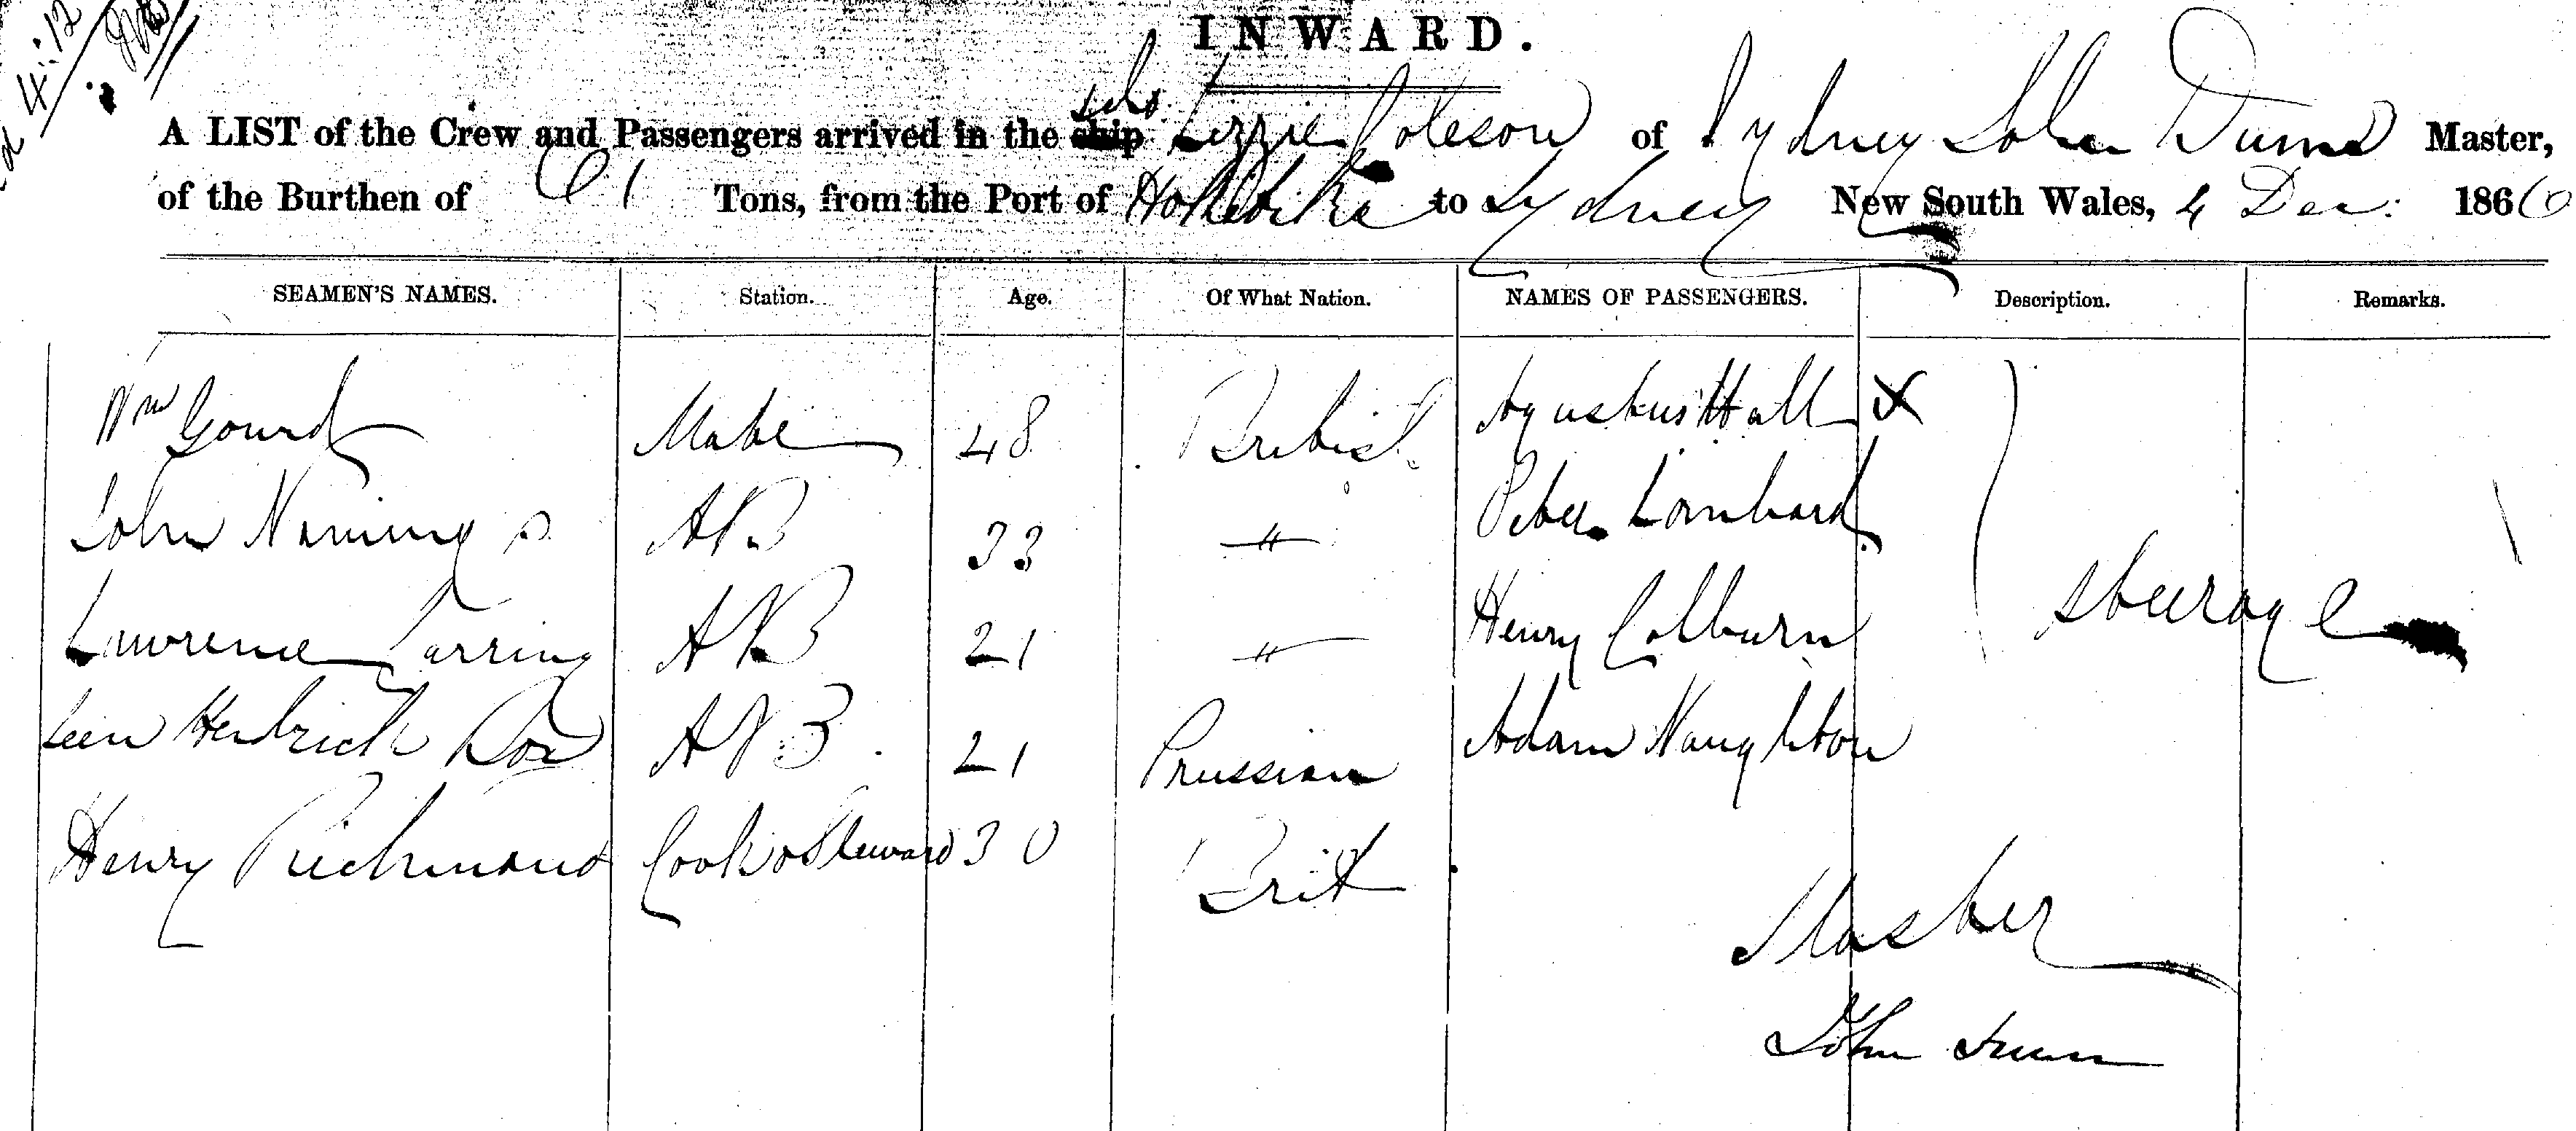 4:12
INWARD.
A LIST of the Crew and Passengers arrived in the ship Schr Lizzie Coleson of Sydney John Dunn Master,
of the Burthen of 61 Tons, from the Port of Hokitika to Sydney New South Wales, 4 Dec: 1866
SEAMEN'S NAMES. Station. Age. Of What Nation. NAMES OF PASSENGERS. Description. Remarks.
Wm Gourd Mate 48 British Agustus Hall X
John AB 33 " Peter Lombard
Lawrence Tarring AB 21 " Henry Colburn Steerage
Hendrich AB 21 Prussian Adam Naughton
Henry Richmond Cook & Steward 30 Brit
Master
John Dunn